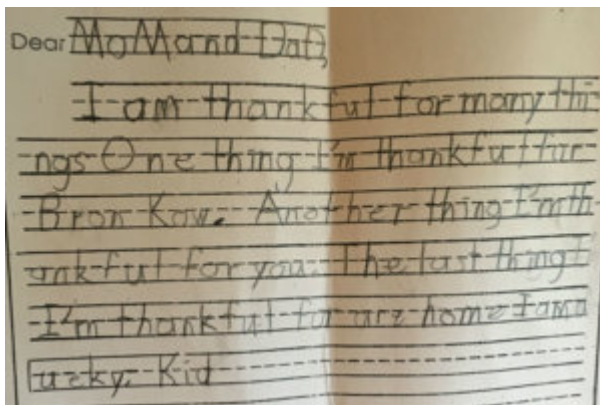 Dear MoM and Dad,
I am thankful for many thi
ngs One thing I'm thankful for
Bron Kow. Another thing I'm th
ankful for you. The last thing
I'm thankful for are home I am a
lucky. Kid